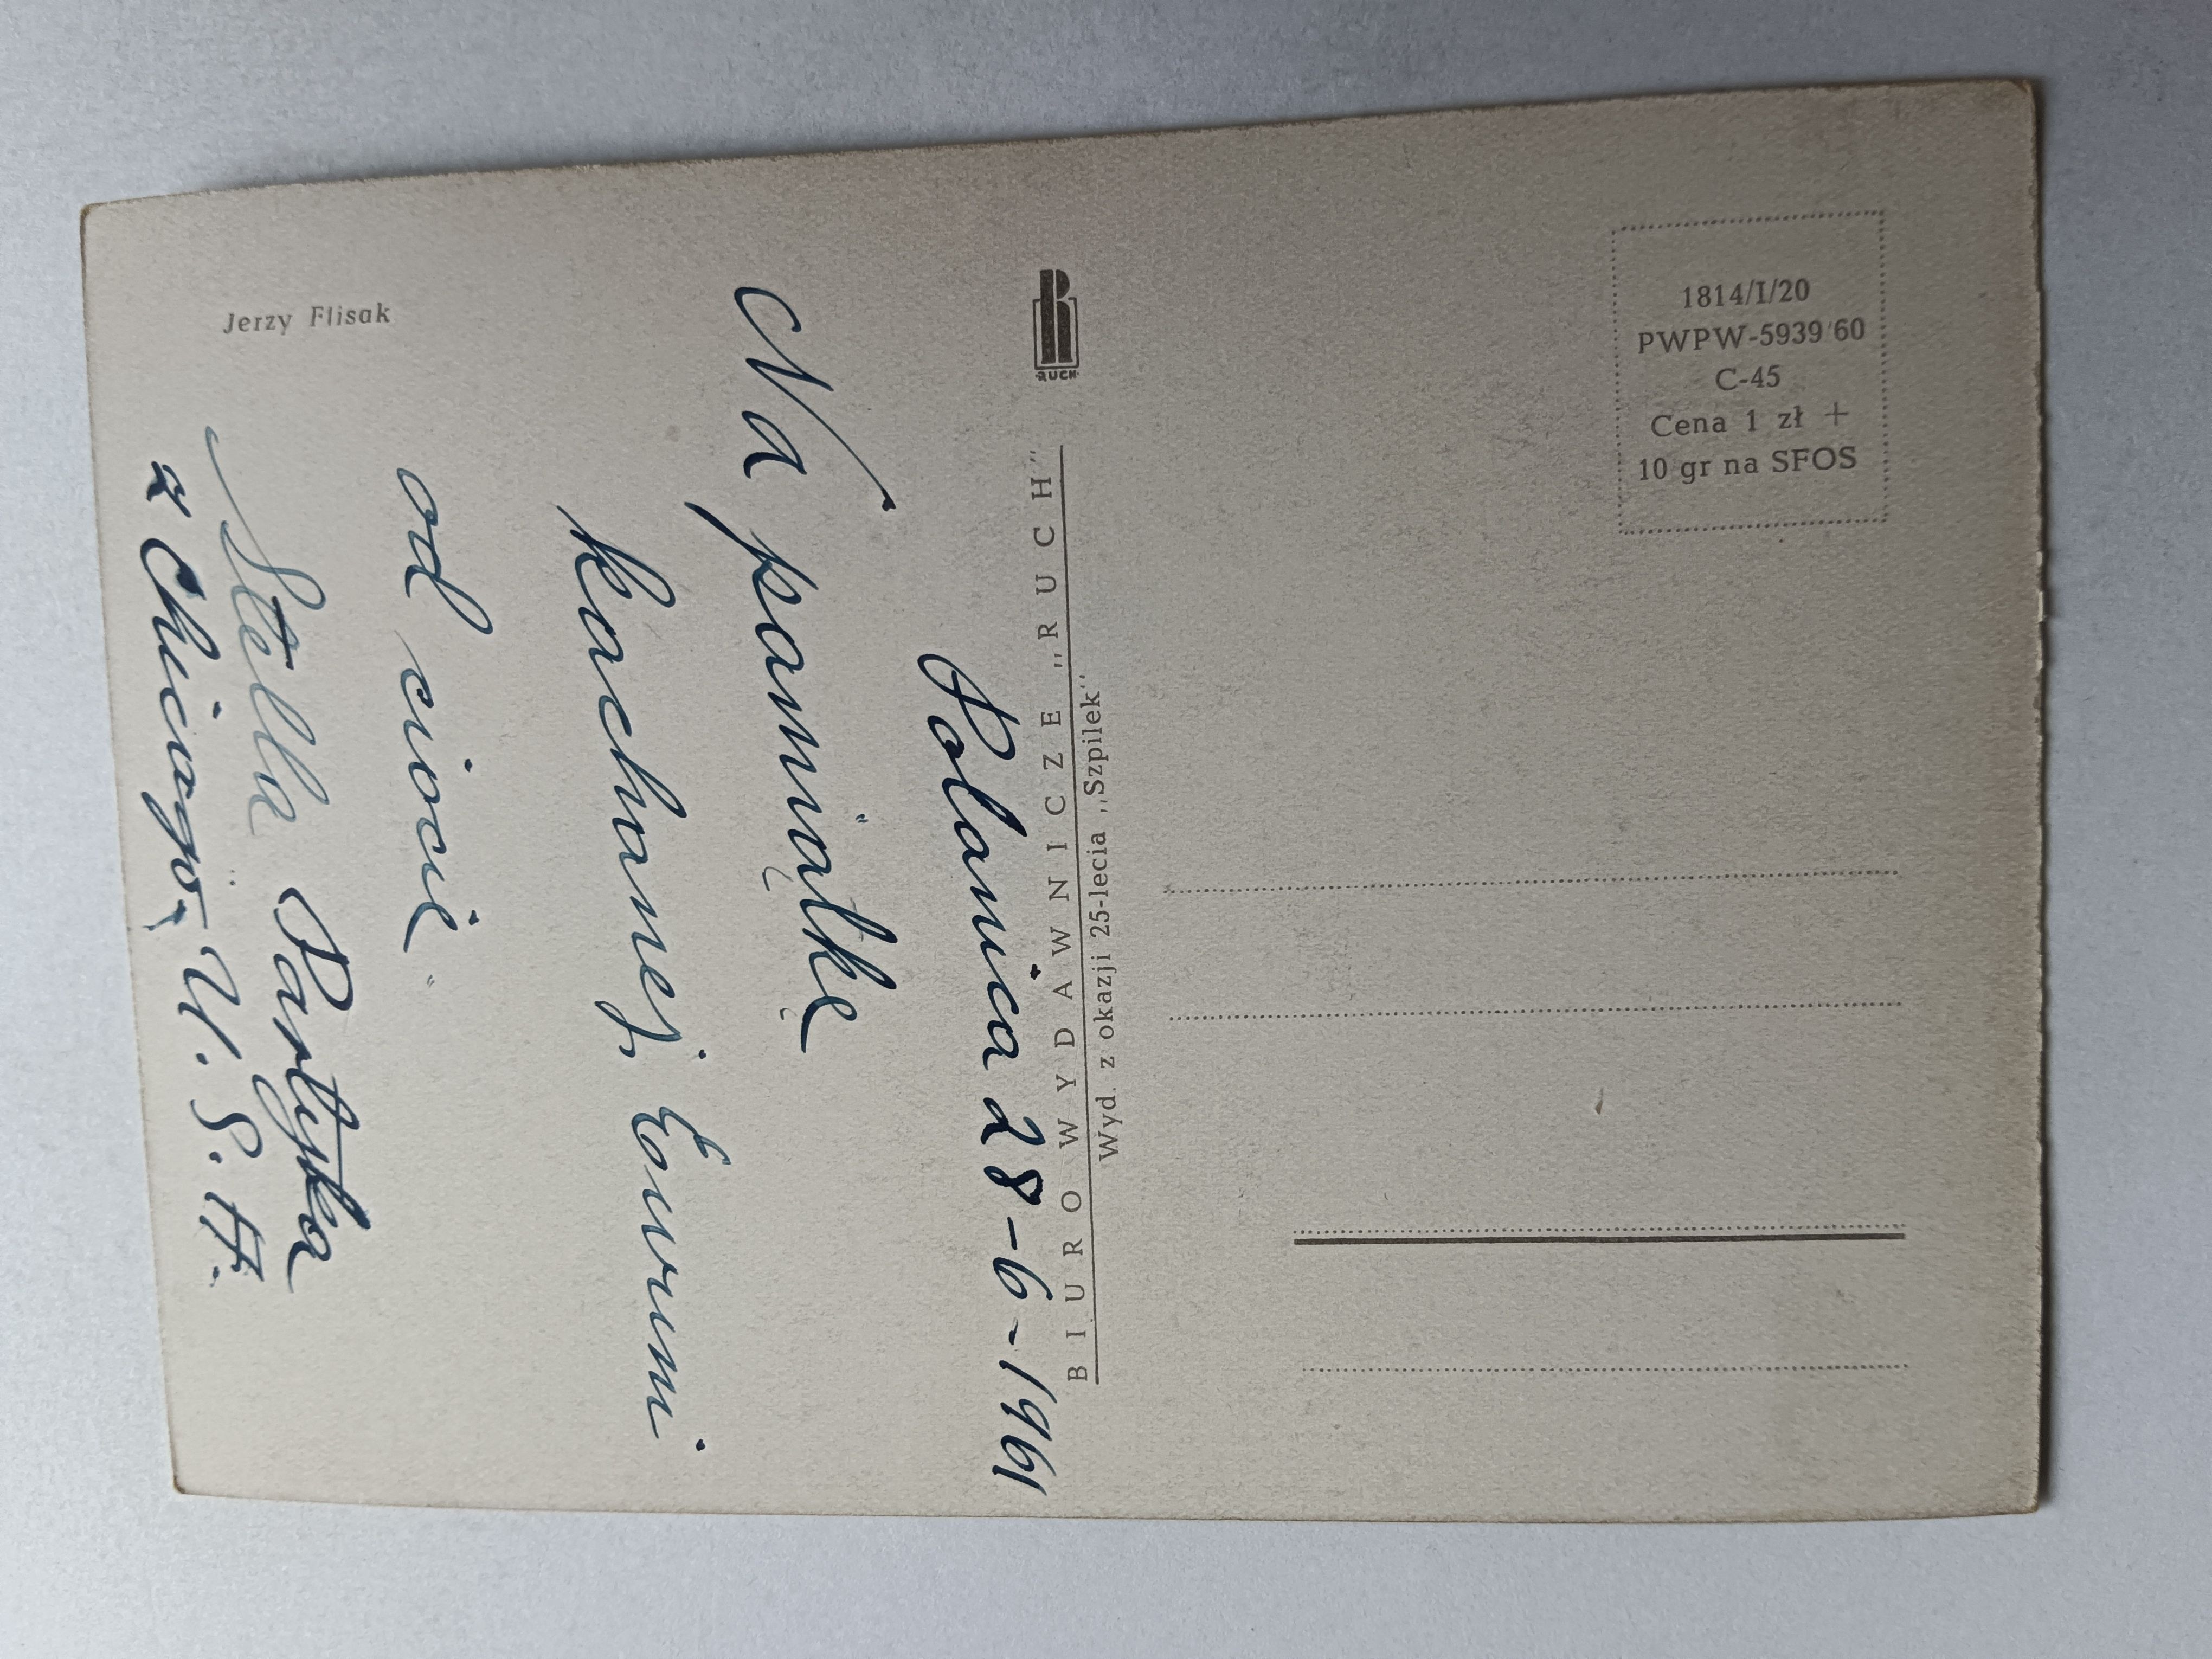 Jerzy Flisak
Polanica 28-6-1961
Na pamiątkę
kochanej
od cioci
Stella Partyka
z Chicago, U.S.A.
RUCH
BIURO WYDAWNICZE „RUCH"
Wyd. z okazji 25-lecia „Szpilek"
1814/I/20
PWPW-5939/60
C-45
Cena 1 zł +
10 gr na SFOS